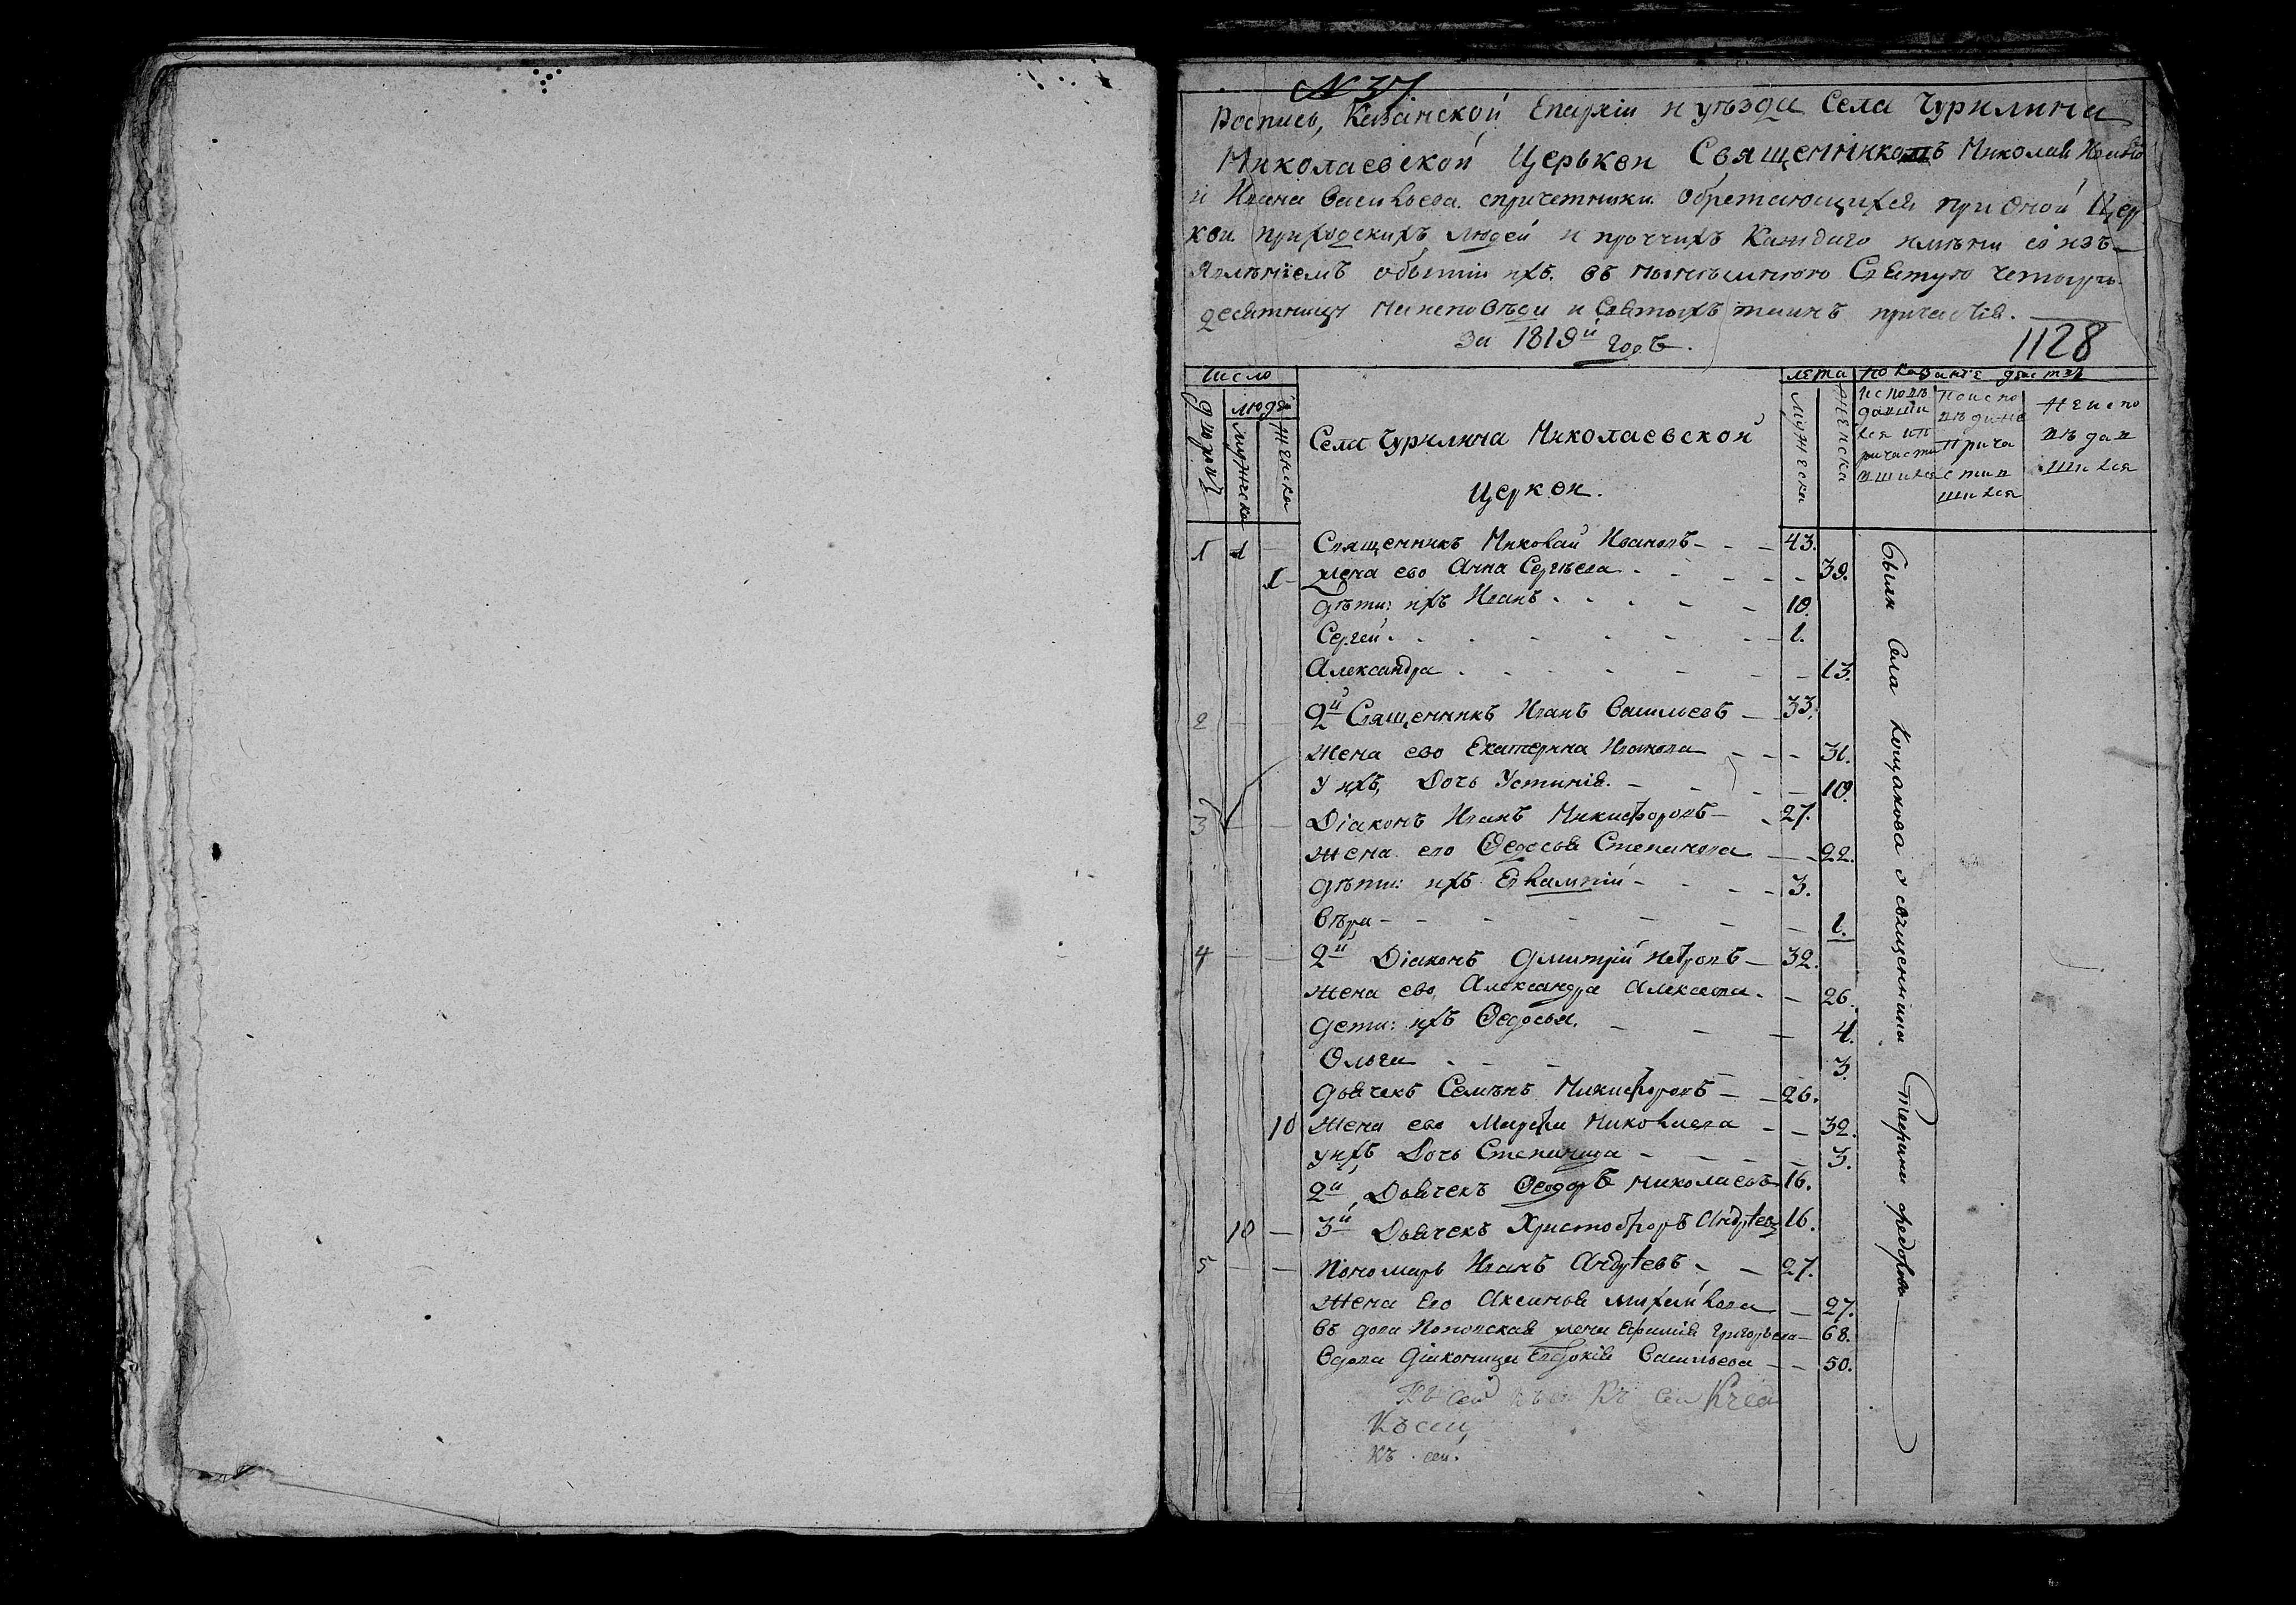 N 37
Роспись, Казанской Епархіи и уѣзда Села Чурилина
Николаевской Церькви Священникомъ Николая
и Ивана Васильева спричетники обретающихся прионой Цер
кви приходскихъ людей и прочихъ Каждаго имѣни со изъ-
явленіемъ обытіи ихъ въ Святую четырь
десятницу наисповѣди и Святыхъ таинъ причастія.
За 1819й годъ.
1128
Число
дворовъ
людей
мужеска
женска
Села Чурилина Николаевской
Церкви.
лета
мужеска
женска
По коя
Исповѣ
давши
ся ип
ричасти
вшихся
Поиспо
вѣди не
прича
стив
шихся
Неиспо
вѣдав
шихся
1 1 — Священникъ Николай Ивановъ 43.
1 жена ево Анна Сергѣева 39.
дѣти: ихъ Иванъ 10.
Сергей 1.
Александра 13.
2 — — 2й Священникъ Иванъ Васильевъ 33.
жена ево Екатерина Иванова 31.
У ихъ, Дочь Устинія 10.
3 — — Діаконъ Иванъ Никифоровъ 27.
жена ево Федосья Степанова 22.
дѣти: ихъ Евлампій 3.
Вѣра 1.
4 — — 2й Діаконъ Дмитрій Петровъ 32.
жена ево, Александра 26.
дети: ихъ Федосья 4.
Ольга 3.
дьячекъ Семенъ Никифоровъ 26.
10 жена ево Марфа Николаева 32.
уихъ Дочь Степанида 3.
2й Дьячекъ Феодоръ Николаевъ 16.
10 — 3й Дьячекъ Христофоръ Андреевъ 16.
5 — — Пономарь Иванъ Андреевъ 27.
жена Ево Аксинья Михайлова 27.
Въ дова Поповская жена Ефимія Григорьева 68.
Вдова Діяконица Евдокія Васильева 50.
Къ сей къ Къ сей
Къ сей
Къ сей
были Села Кощакова у священника федорова